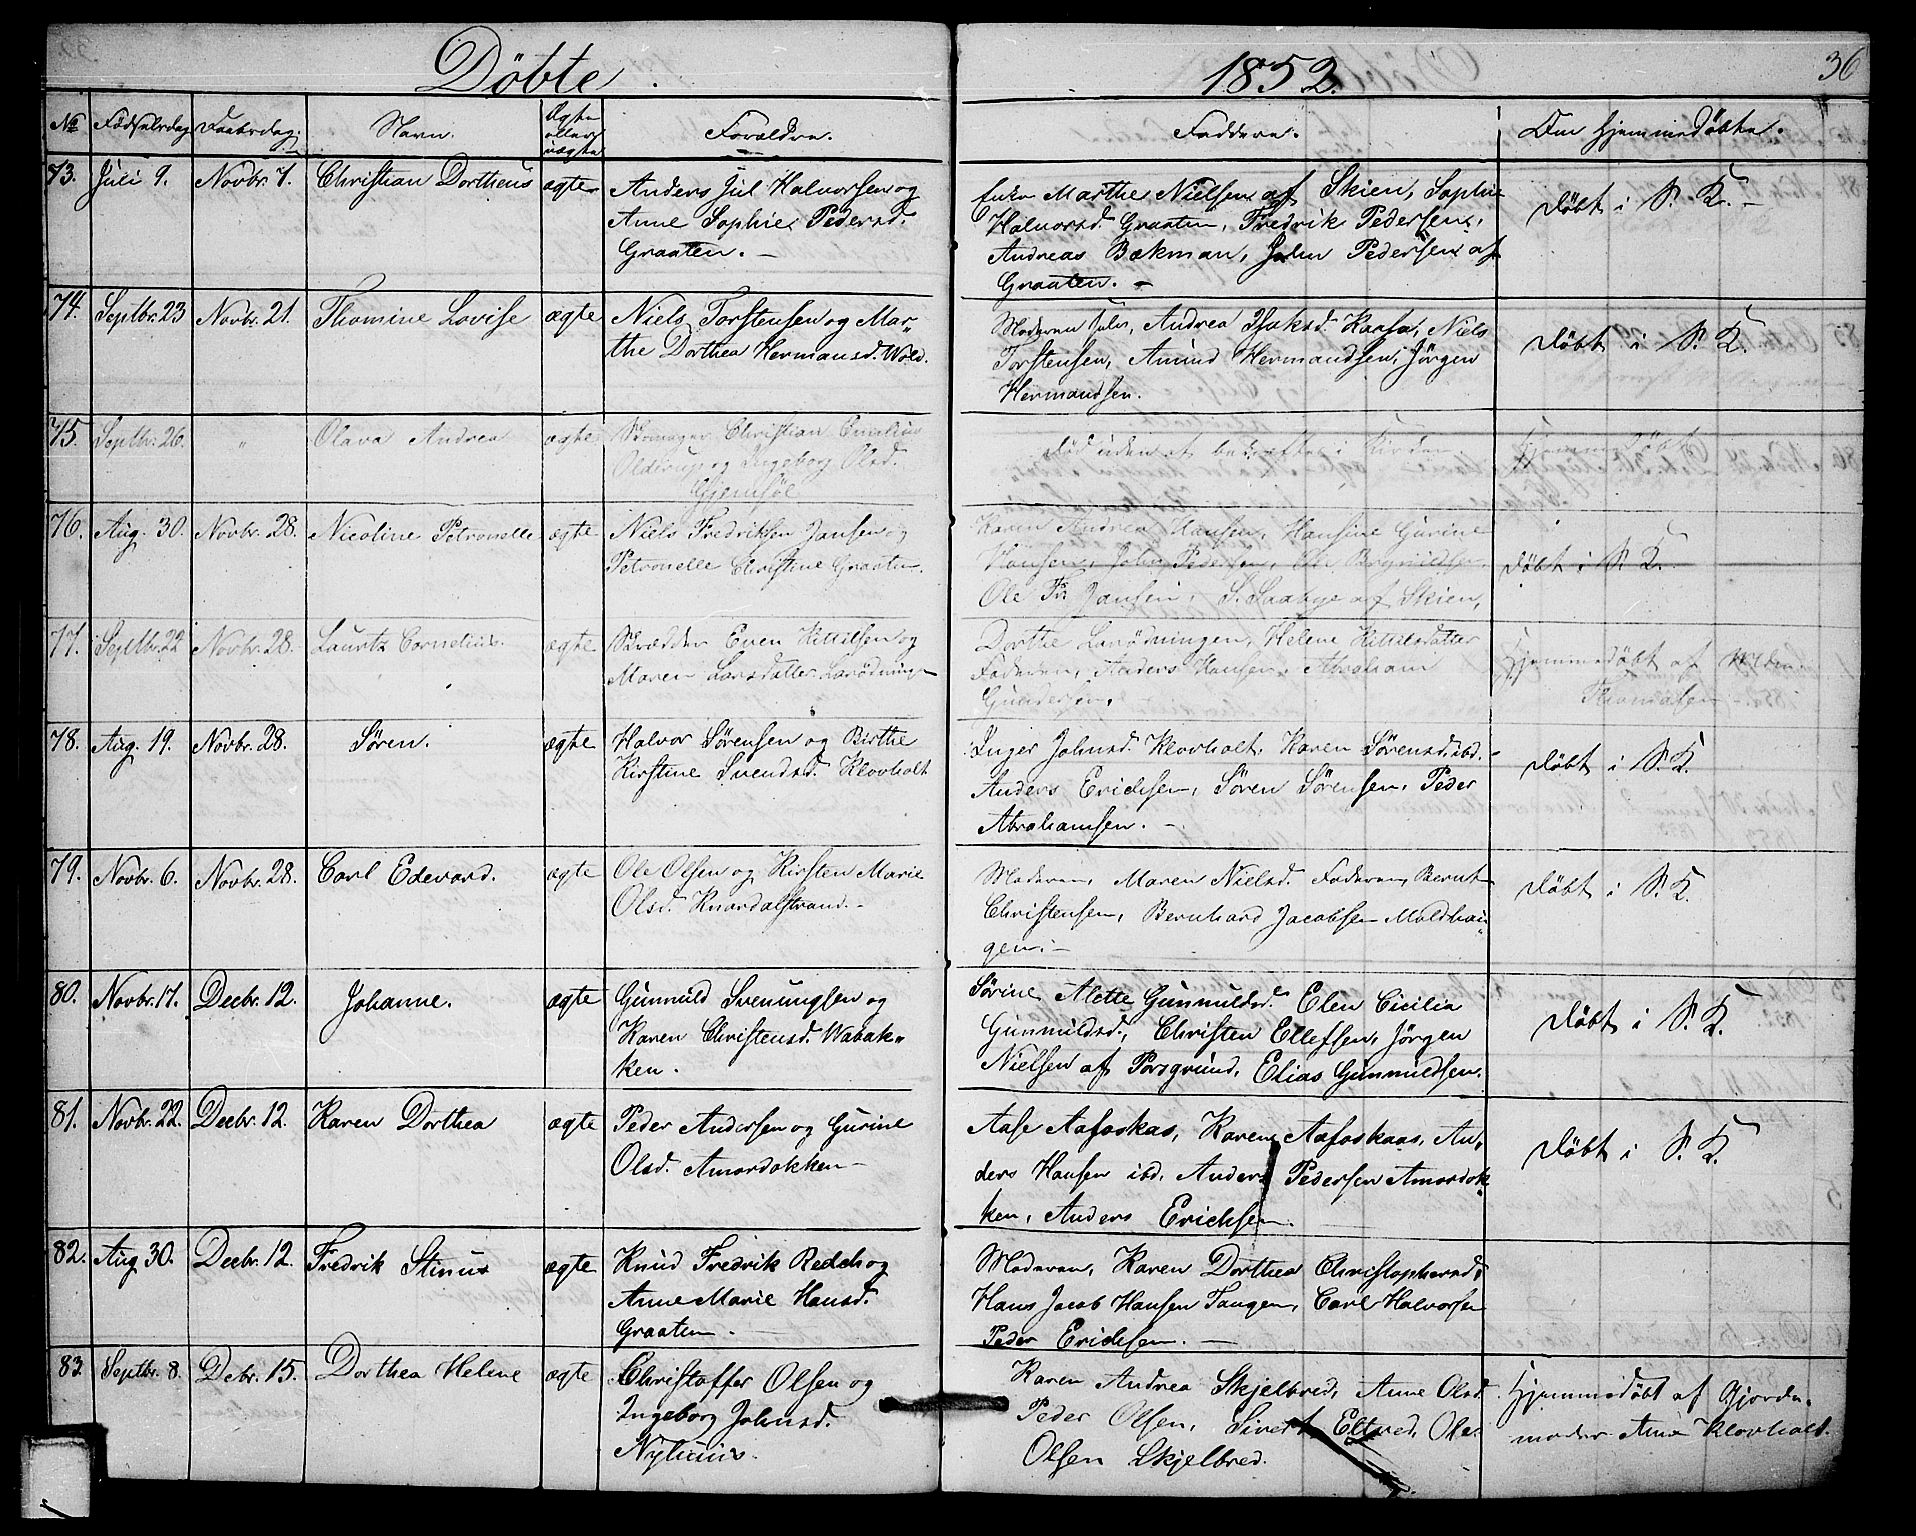 Döbte.
1852.
36
No Födselsdag Daabsdag. Navn. Ægte eller uægte Forældre. Faddere. Den Hjemmedöbte.
73. Juli 9. Novbr. 7. Christian Dortheus ægte
Anders Jul Halvorsen og
Anne Sophie Pedersd.
Graaten. -
Enke Marthe Nielsen af Skien, Sophie
Halvorsd. Graaten, Fredrik Pedersen,
Andreas Bækman, John Pedersen af
Graaten. -
döbt i S. K. -
74. Septbr. 23 Novbr. 21. Thomine Lovise ægte
Niels Torstensen og Mar-
the Dorthea Hermansd. Wold.
Moderen, Andrea Isaksd. Kaasa, Niels
Torstensen, Amund Hermandsen, Jörgen
Hermandsen.
döbt i S. K.
75. Septbr. 26. " Olava Andrea ægte
Skomager Christian Emilius
Olderup og Ingeborg Olsd.
Gjemsöe
död uden at bekræftes i Kirken
Hjemmedöbt
76. Aug. 30. Novbr. 28. Nicoline Petronelle ægte
Niels Fredriksen Jansen og
Petronelle Christine Graaten.
Karen Andrea Hansen, Hansine Gurine
Hansen, John Pedersen, Ole Brynildsen
Ole Fr. Jansen, S. Saabye af Skien,
döbt i S. K.
77. Septbr. 22 Novbr. 28. Lauritz Cornelius. ægte
Skrædder Even Kittilsen og
Maren Larsdatter Larödningen
Dorthe Larödningen, Helene Kittilsdatter
Faderen, Anders Hansen, Abraham
Gundersen.
Hjemmedöbt af
78. Aug. 19. Novbr. 28. Sören. ægte
Halvor Sörensen og Birthe
Kirstine Svendsd. Klovholt
Inger Johnsd. Klovholt, Karen Sörensd. ibd. -
Anders Erichsen, Sören Sörensen, Peder
Abrahamsen. -
döbt i S. K.
79. Novbr. 6. Novbr. 28. Carl Edevard. ægte
Ole Olsen og Kirsten Marie
Olsd. Knardalstrand. -
Moderen, Maren Nielsd. Faderen, Bernt
Christensen, Bernhard Jacobsen Moldhau-
gen. -
döbt i S. K.
80. Novbr. 17. Decbr. 12. Johanne. ægte
Gunnuld Svenungsen og
Karen Christensd. Wabak-
ken.
Sörine Alette Gunnuldsd. Elen Cicilia
Gunnuldsd., Christen Ellefsen, Jörgen
Nielsen af Porsgrund, Elias Gunnuldsen.
döbt i S. K.
81. Novbr. 22. Decbr. 12. Karen Dorthea ægte
Peder Andersen og Gurine
Olsd. Amordokken -
Aase Aafoskas, Karen Aafoskaas, An-
ders Hansen ibd. Anders Pedersen Amordok-
ken, Anders Erichsen.
döbt i S. K.
82. Aug 30. Decbr. 12. Fredrik Stinus ægte
Knud Fredrik Redch og
Anne Marie Hansd.
Graaten -
Moderen, Karen Dorthea Christophersd.
Hans Jacob Hansen Tangen, Carl Halvorsen
Peder Erichsen. -
83. Septbr. 8. Debr. 15. Dorthea Helene ægte
Christoffer Olsen og
Ingeborg Johnsd.
Nyhuus.
Karen Andrea Skjelbred, Anne Olsd.
Peder Olsen, Sivert Eltved, Ole
Olsen Skjelbred.
Hjemmedöbt af Gjorde-
moder Ane Klovholt.